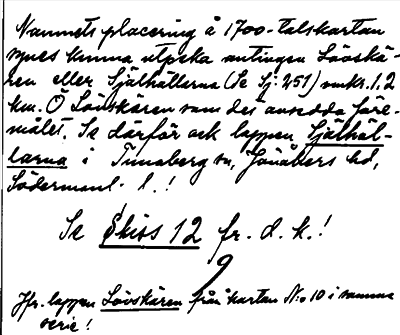 Namnets placering å 1700-talskartan
synes kunna utpeka antingen Lövskä-
ren eller Själhällarna (Se Sj: 251) omkr. 1.2
km. Ö Lövskären som det avsedda före-
målet. Se därför ock lappen Själhäl-
larna i Tunaberg sn, Jönåkers hd,
Södermanl. l.!
Se Skiss 12 fr. d. k.!
9
Jfr. lappen Lövskären från kartan N:o 10 i samma
serie!